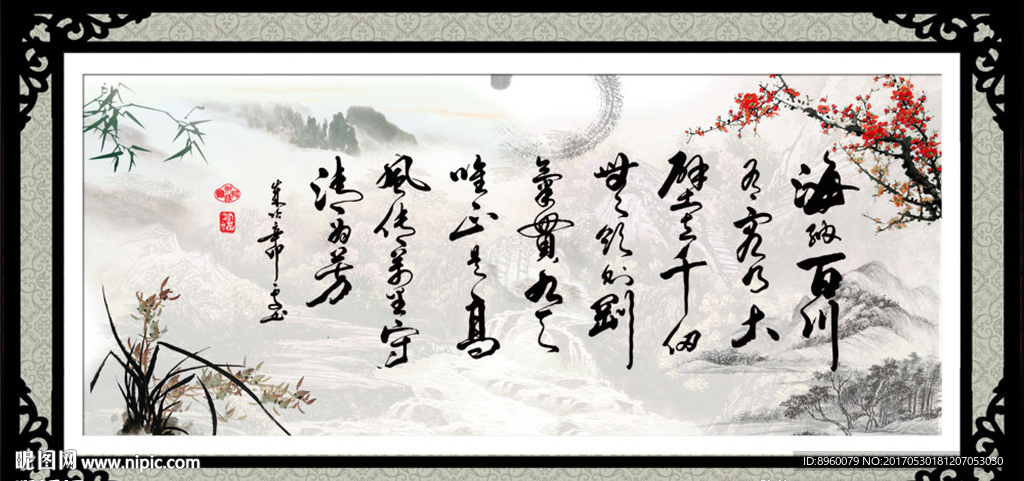 海纳百川
有容乃大
壁立千仞
無欲则剛
氣貫九天
唯正是高
風传萬里守
清为芳
昵图网 www.nipic.com
ID:8960079 NO:20170530181207053030